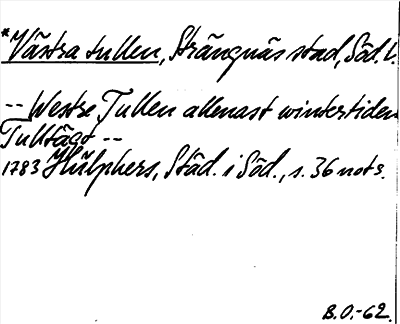 *Västra tullen, Strängnäs stad, Söd. l.
-- Westre Tullen allenast wintertiden
Tulltägt --
1783 Hülphers, Städ. i Söd., s. 36 not s.
B.O.-62.